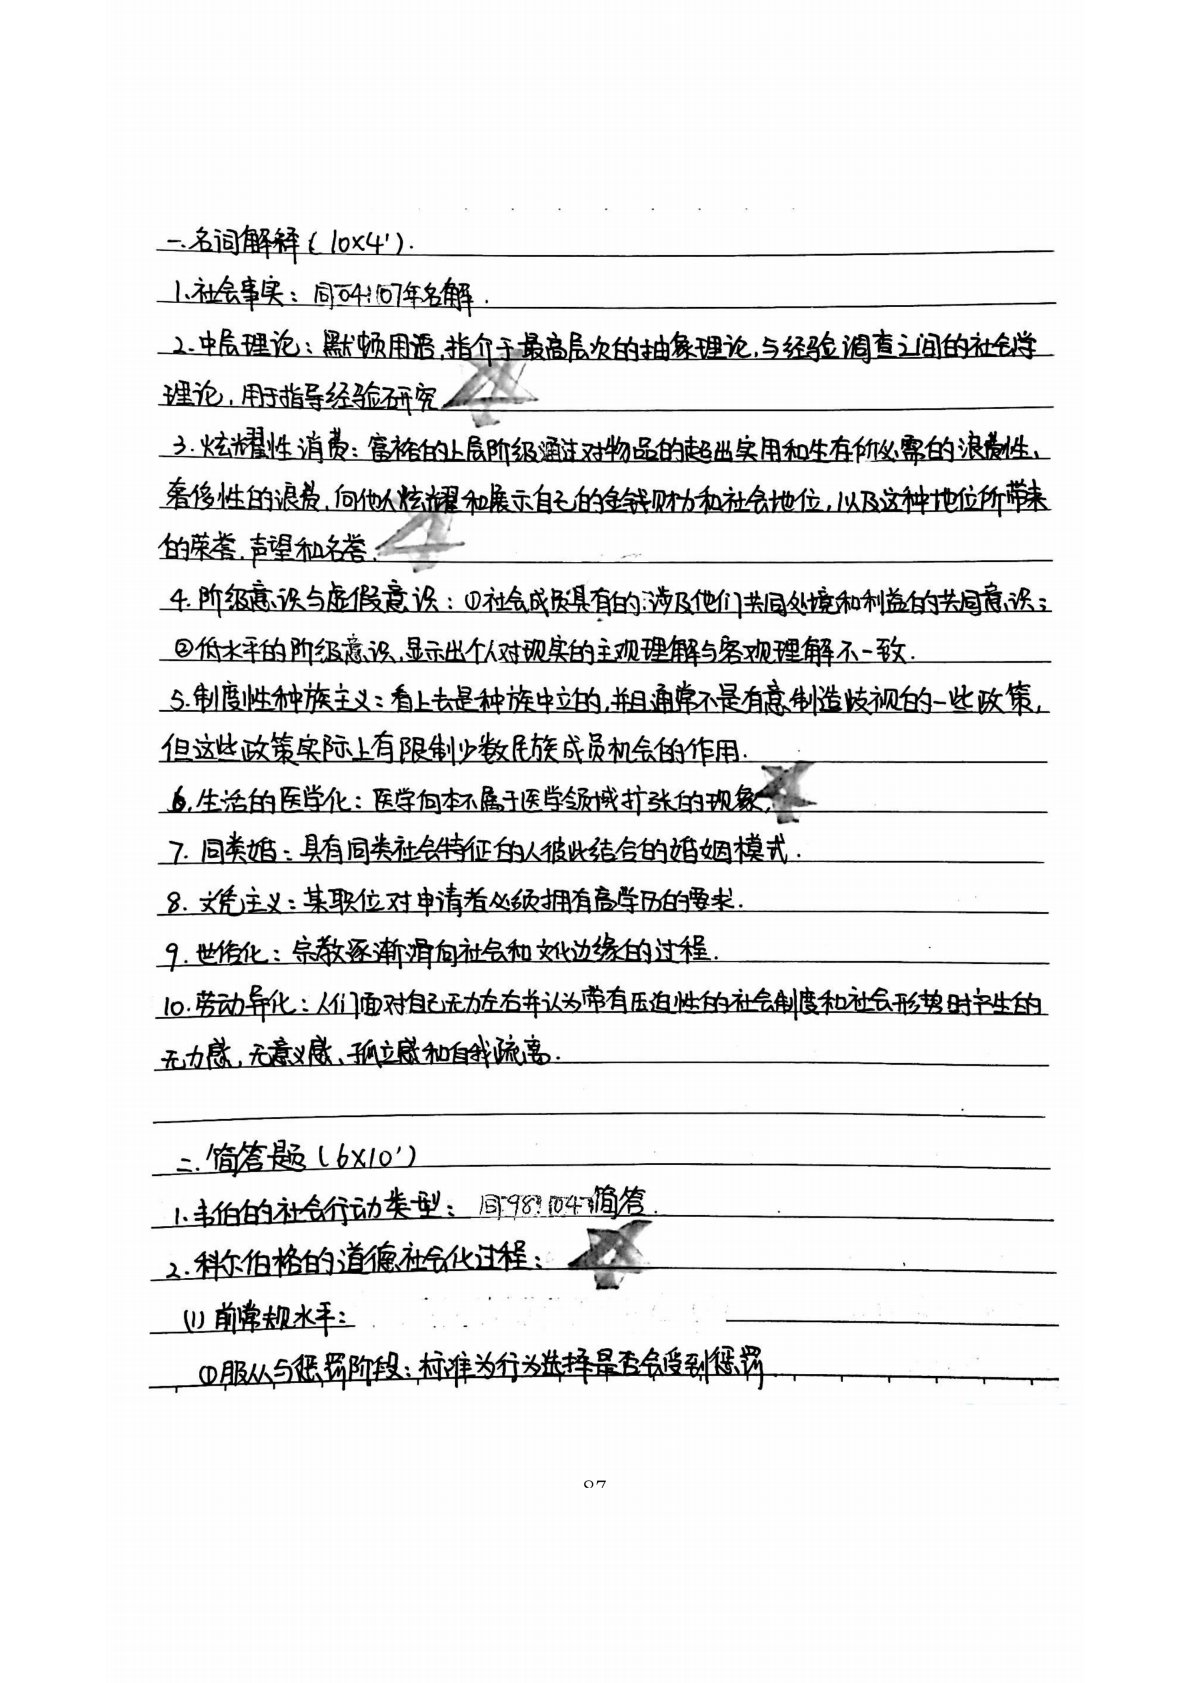 一.名词解释(10×4').
1.社会事实：同04、07年名解.
2.中层理论：默顿用语,指介于最高层次的抽象理论,与经验调查之间的社会学
理论,用于指导经验研究
3.炫耀性消费：富裕的上层阶级通过对物品的超出实用和生存所必需的浪费性、
奢侈性的浪费,向他人炫耀和展示自己的金钱财力和社会地位,以及这种地位所带来
的荣誉、声望和名誉.
4.阶级意识与虚假意识：①社会成员具有的涉及他们共同处境和利益的共同意识；
②低水平的阶级意识,显示出个人对现实的主观理解与客观理解不一致.
5.制度性种族主义：看上去是种族中立的,并且通常不是有意制造歧视的一些政策,
但这些政策实际上有限制少数民族成员机会的作用.
6.生活的医学化：医学向本不属于医学领域扩张的现象.
7.同类婚：具有同类社会特征的人彼此结合的婚姻模式.
8.文凭主义：某职位对申请者必须拥有高学历的要求.
9.世俗化：宗教逐渐滑向社会和文化边缘的过程.
10.劳动异化：人们面对自己无力左右并认为带有压迫性的社会制度和社会形势时产生的
无力感、无意义感、孤立感和自我疏离.
二.简答题(6×10')
1.韦伯的社会行动类型：同98、04简答.
2.科尔伯格的道德社会化过程：
(1)前常规水平：
①服从与惩罚阶段：标准为行为选择是否会受到惩罚
97